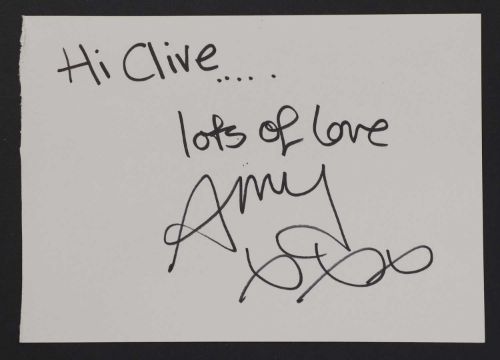 Hi Clive.....
lots of love
Amy
xxxx